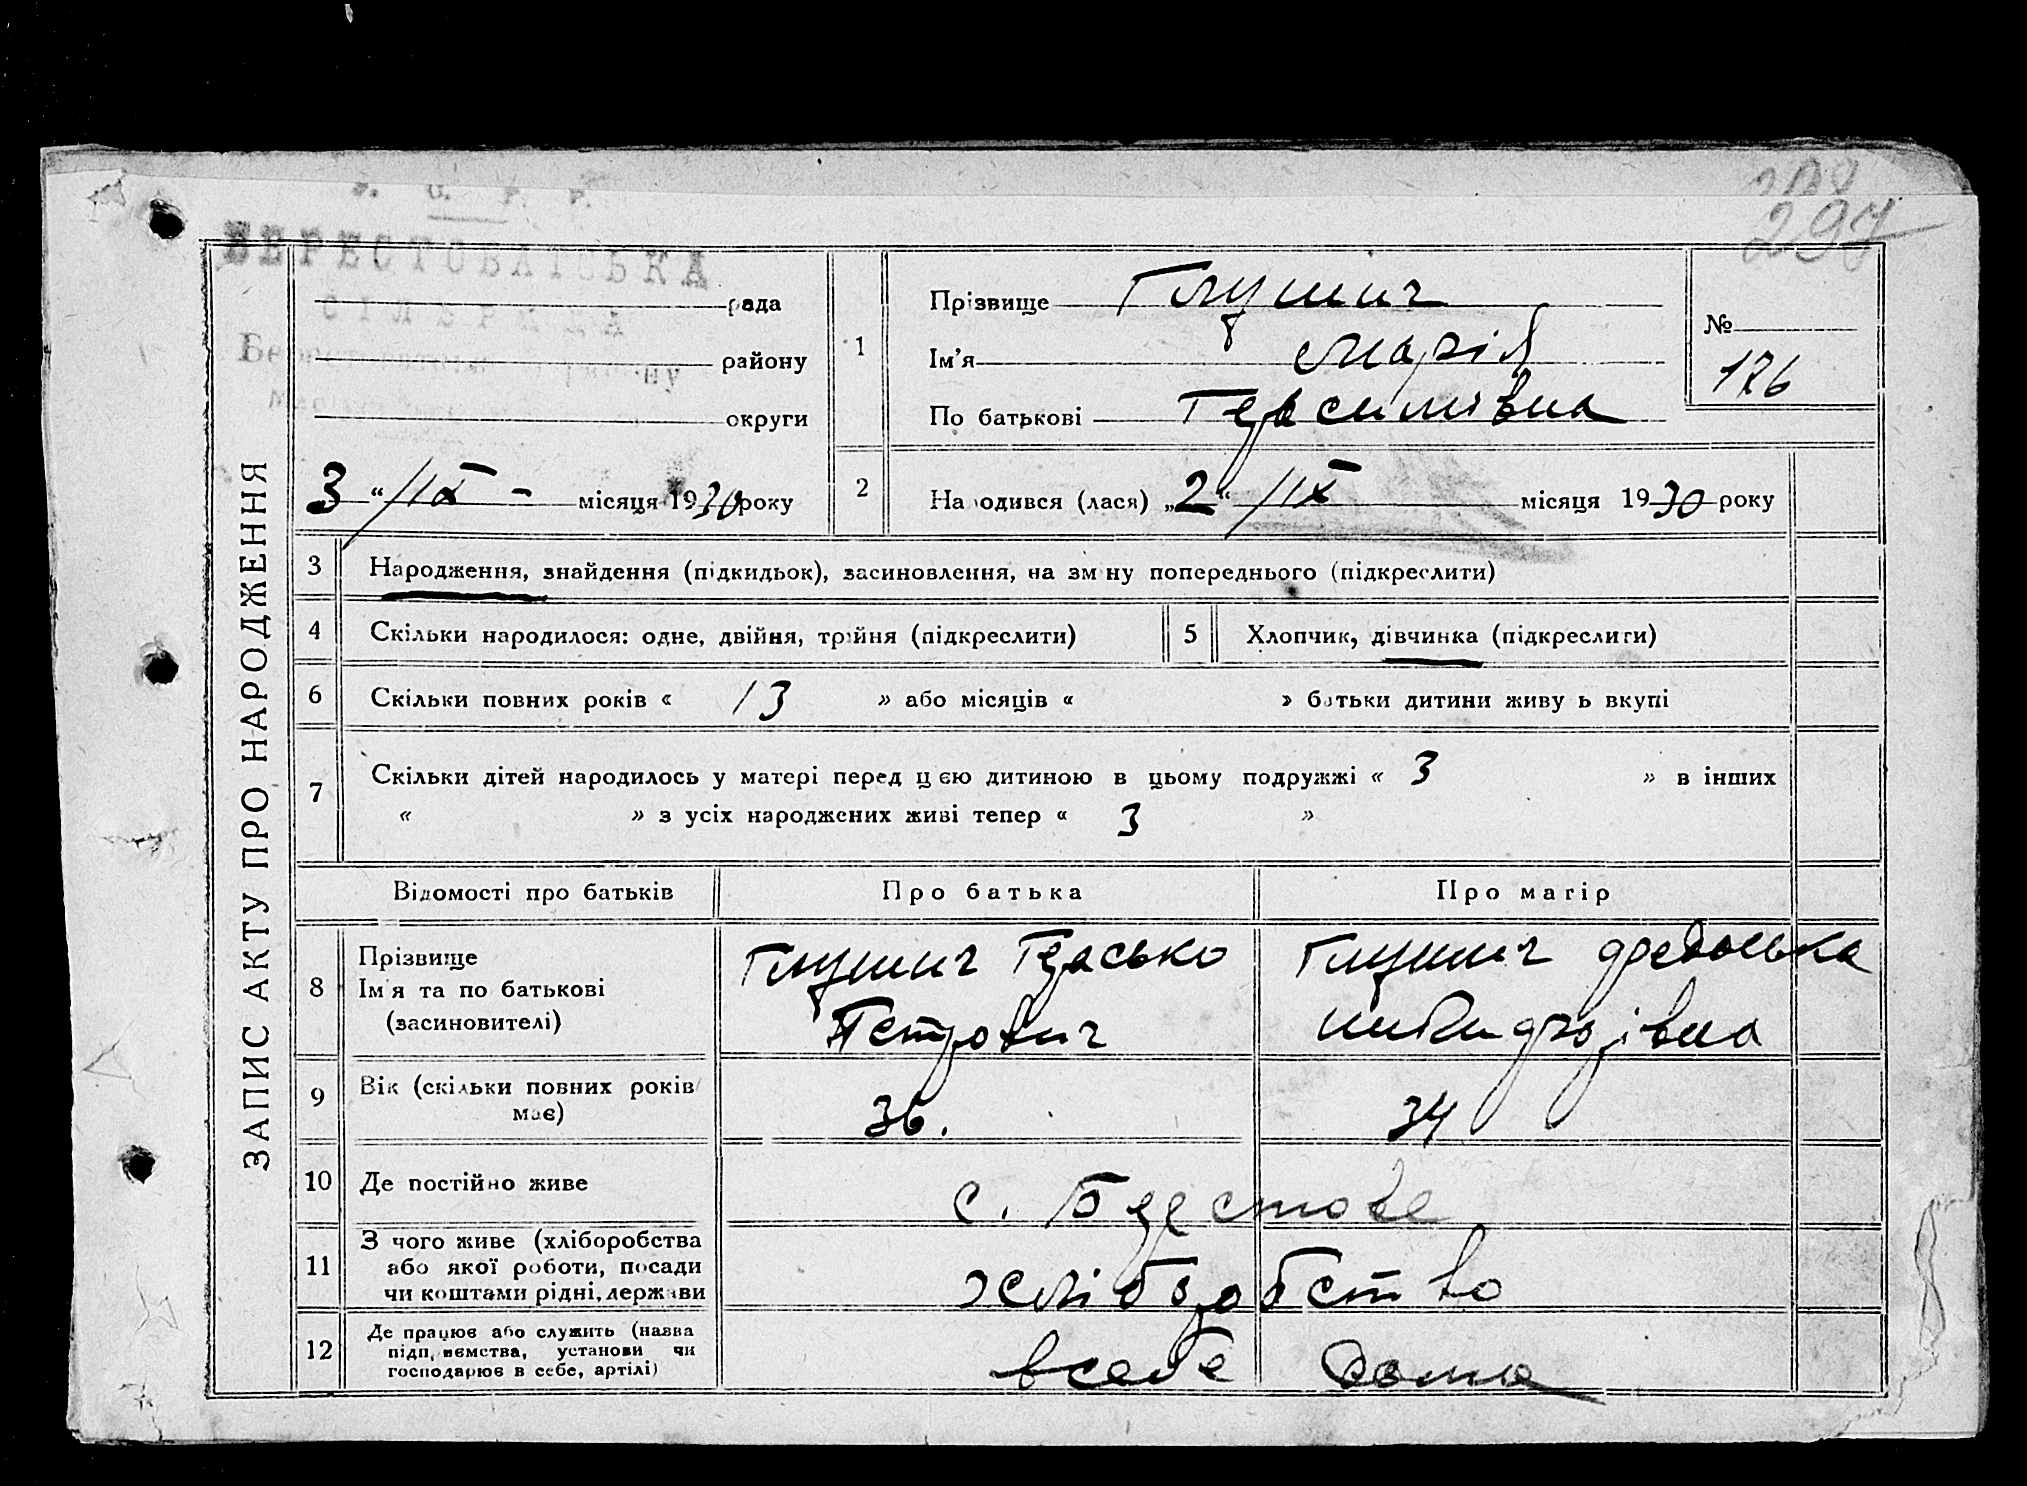 298
297
У. С. Р. Р.
БЕРЕСТОВАТСЬКА
СІЛЬРАДА
рада
району
округи
„3“ /IX - місяця 1930 року
1
Прізвище Глушич
Ім’я Марія
По батькові Герасимівна
№
126
2
Народився (лася) „2“ /IX місяця 1930 року
ЗАПИС АКТУ ПРО НАРОДЖЕННЯ
3 Народження, знайдення (підкидьок), засиновлення, на зміну попереднього (підкреслити)
4 Скільки народилося: одне, двійня, трійня (підкреслити)
5 Хлопчик, дівчинка (підкреслити)
6 Скільки повних років « 13 » або місяців « » батьки дитини живуть вкупі
7 Скільки дітей народилось у матері перед цією дитиною в цьому подружжі « 3 » в інших
« » з усіх народжених живі тепер « 3 »
Відомості про батьків
Про батька
Про матір
8
Прізвище
Ім’я та по батькові
(засиновителі)
Глушич Герасько
Петрович
Глушич
9
Вік (скільки повних років
має)
36.
34
10 Де постійно живе
с. Берестове
11
З чого живе (хліборобства
або якої роботи, посади
чи коштами рідні, держави
хліборобство
12
Де працює або служить (назва
підприємства, установи чи
господарює в себе, артілі)
в себе дома